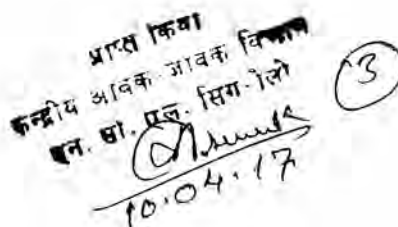 प्राप्त किया
केन्द्रीय आवक-जावक विभाग
एन. सी. एल. सिंगरौली
3
10.04.17